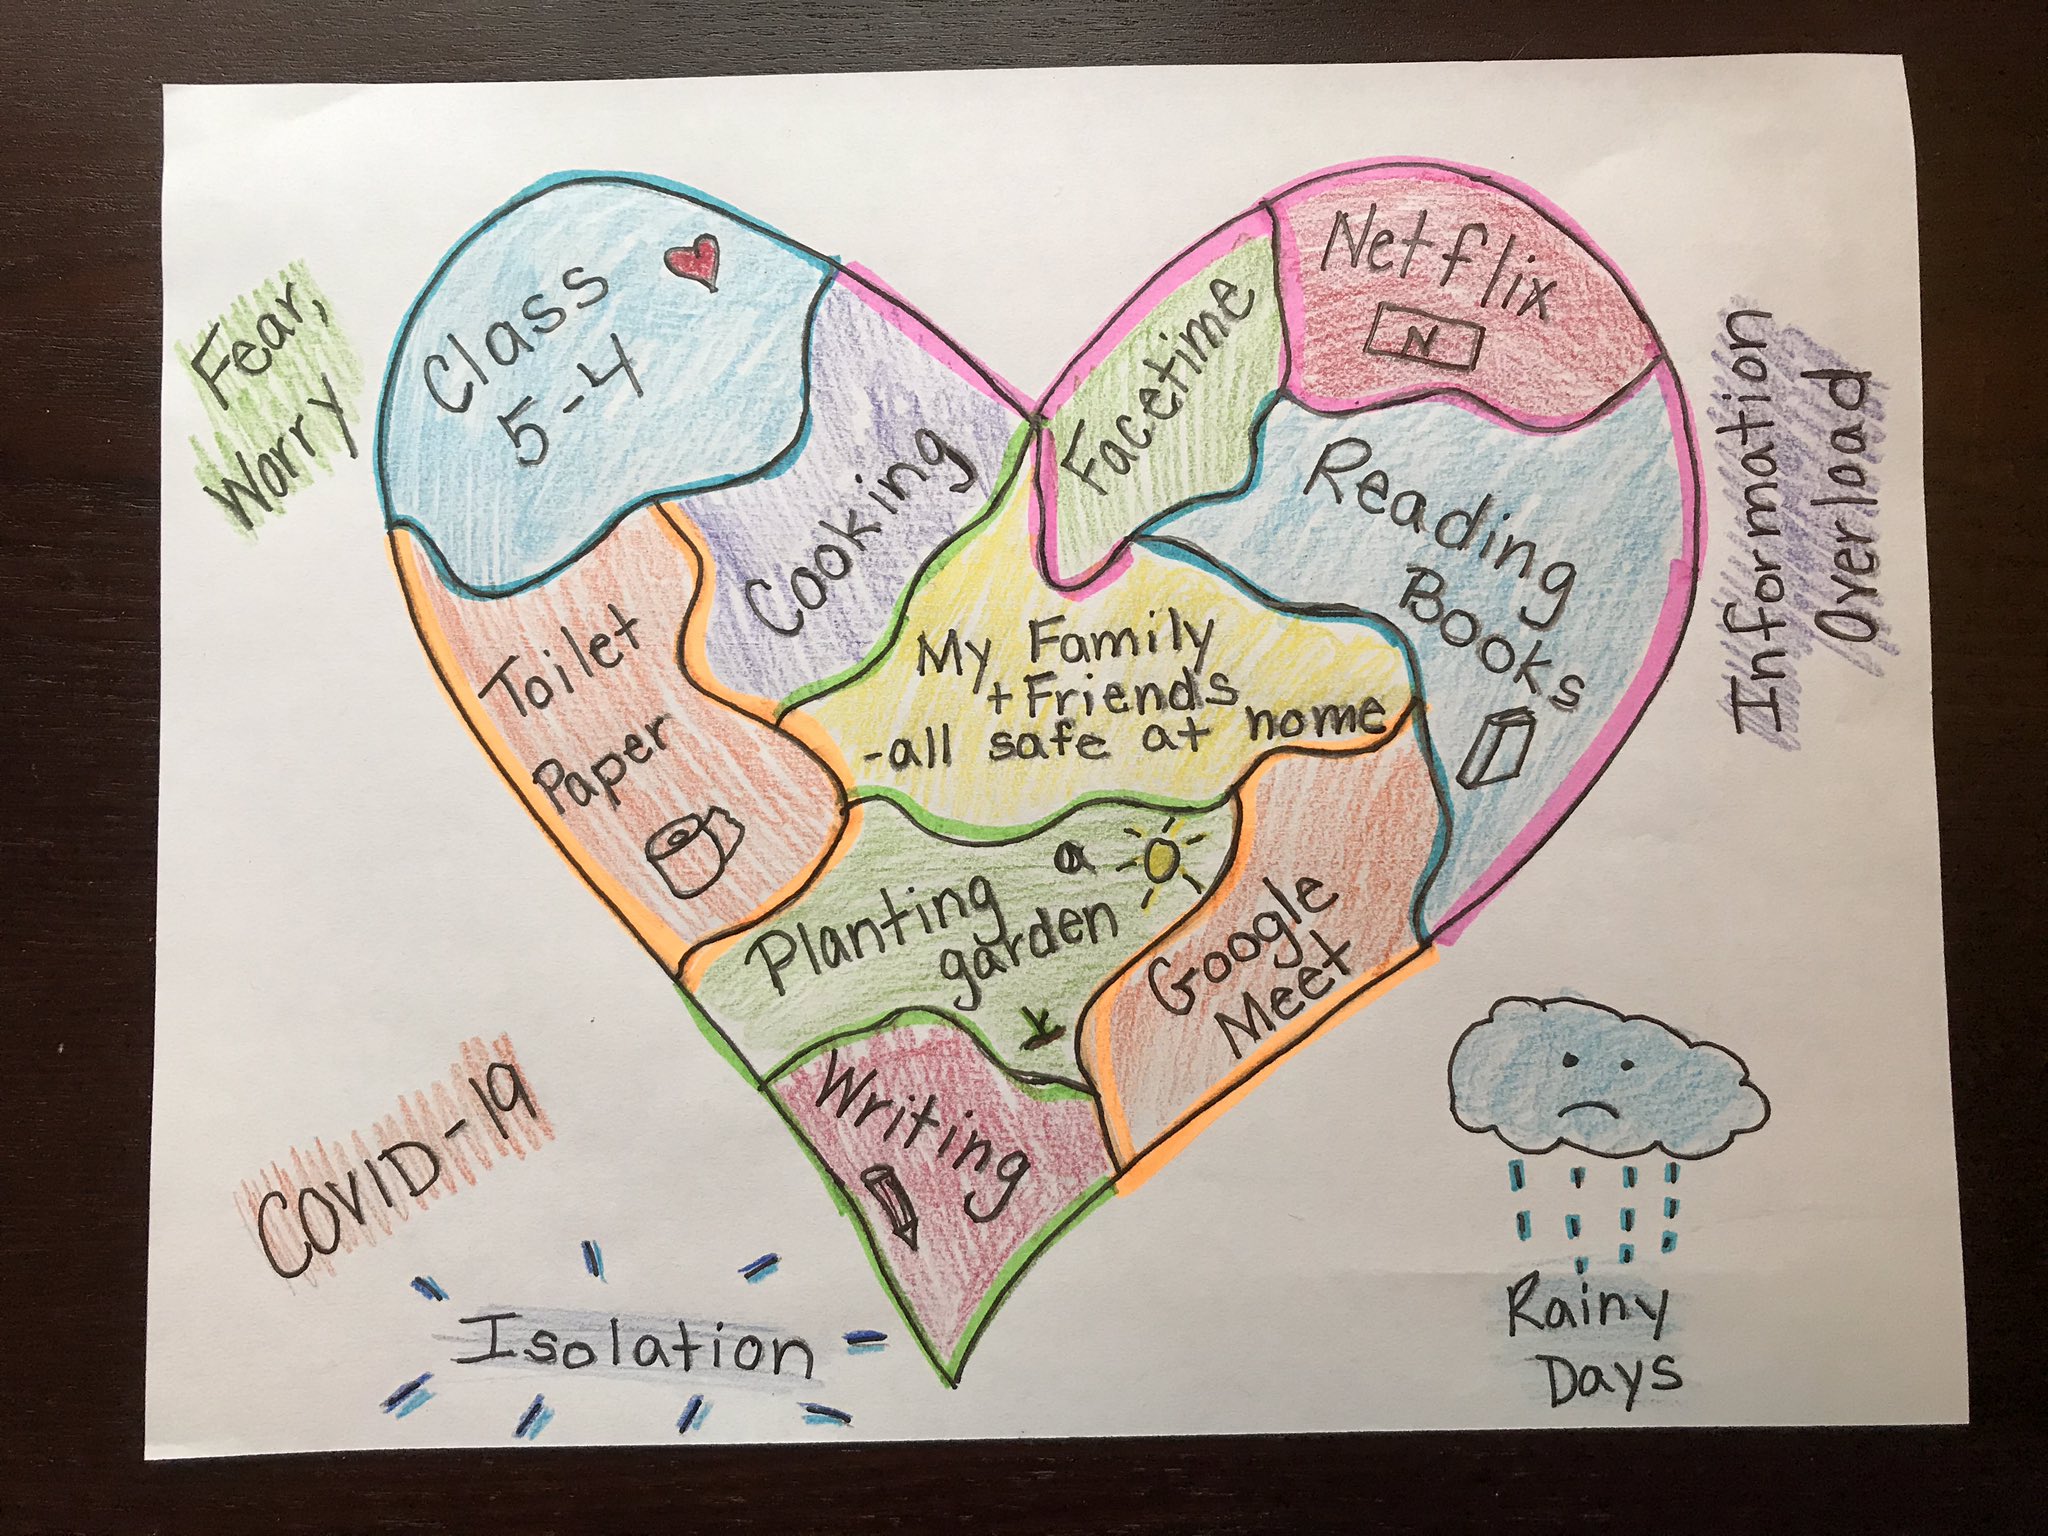 Fear,
Worry
Class
5-4
Cooking
Facetime
Netflix
N
Reading
Books
Information
Overload
Toilet
Paper
My Family
+ Friends
-all safe at home
Planting a
garden
Google
Meet
Writing
COVID-19
Isolation
Rainy
Days